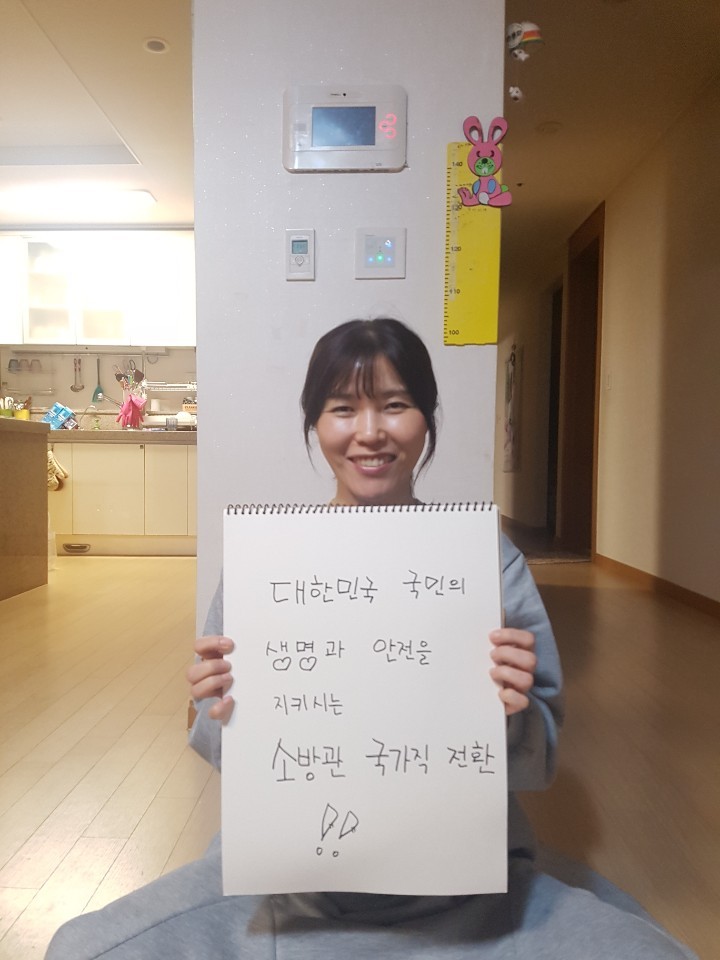 대한민국 국민의
생명과 안전을
지키시는
소방관 국가직 전환
!!
140
120
110
100